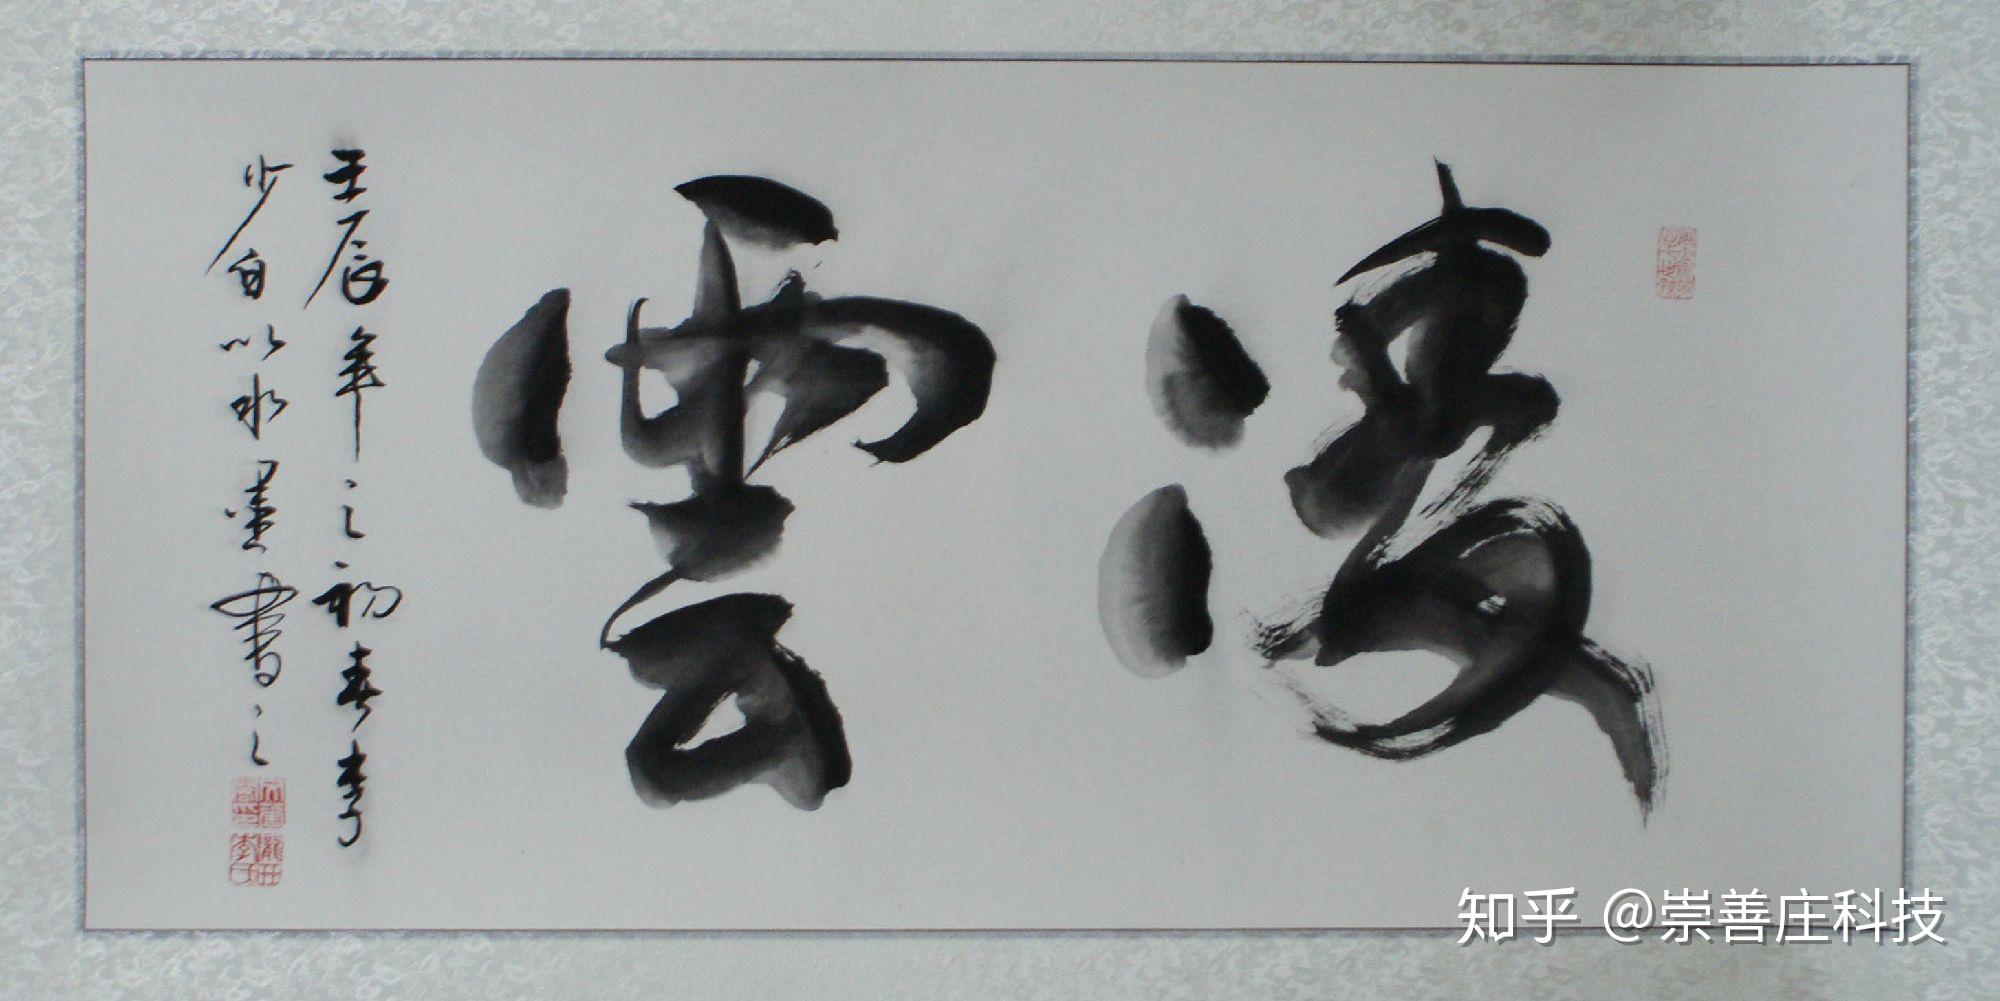 凌雲
壬辰年之初春李
少白以水墨書之
知乎 @崇善庄科技